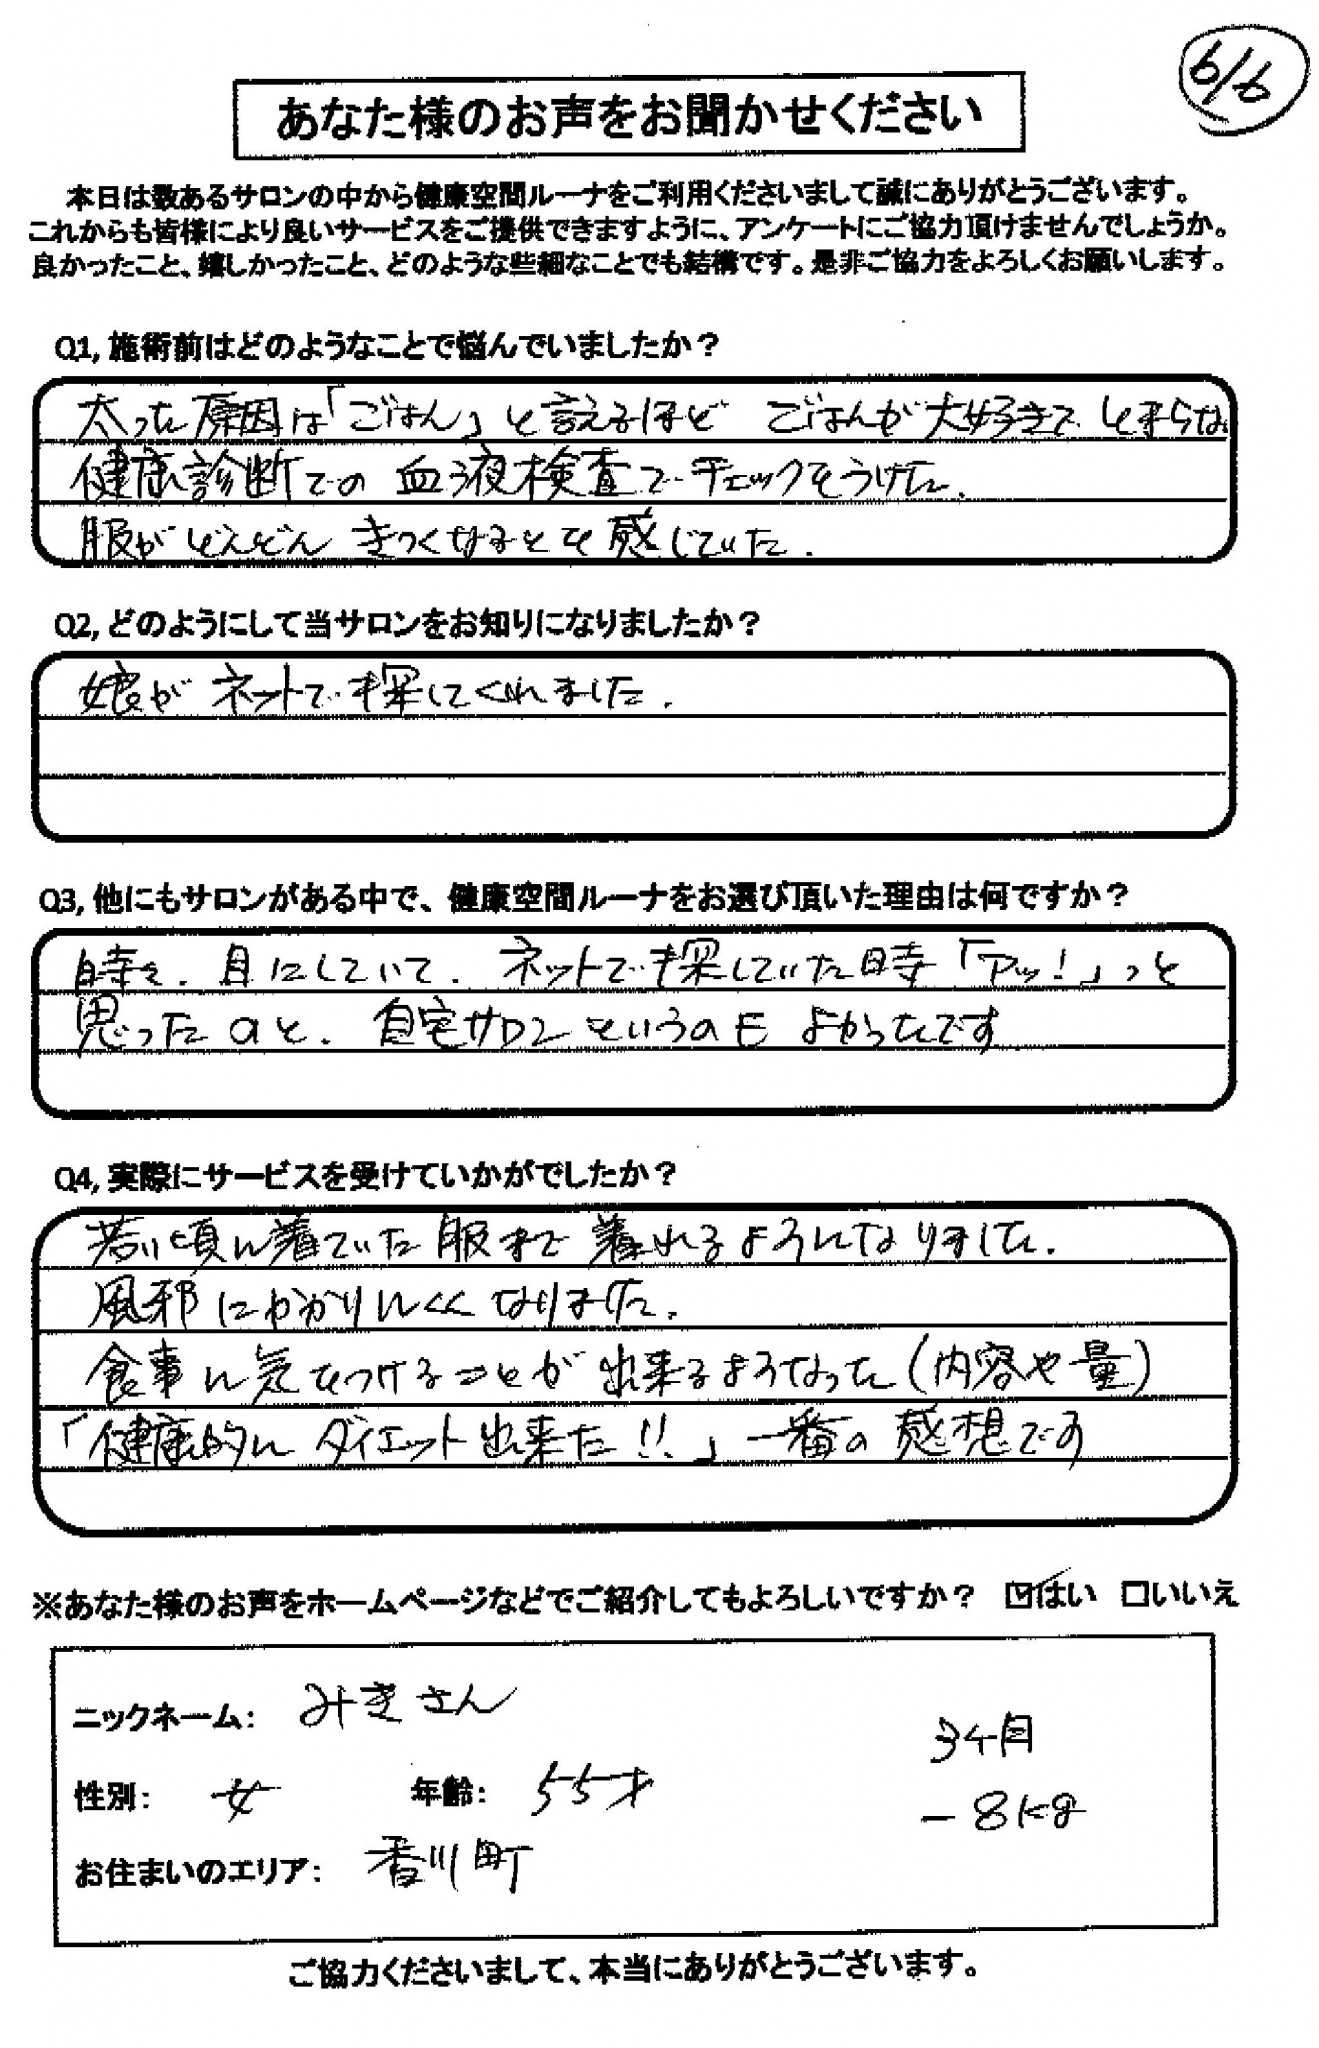 6/6
あなた様のお声をお聞かせください
本日は数あるサロンの中から健康空間ルーナをご利用くださいまして誠にありがとうございます。
これからも皆様により良いサービスをご提供できますように、アンケートにご協力頂けませんでしょうか。
良かったこと、嬉しかったこと、どのような些細なことでも結構です。是非ご協力をよろしくお願いします。
Q1,施術前はどのようなことで悩んでいましたか？
太った原因は「ごはん」と言えるほど ごはんが大好きで とまらない
健康診断での 血液検査で チェックをうけた.
服が どんどん きつくなることを 感じていた.
Q2,どのようにして当サロンをお知りになりましたか？
娘が ネットで 探してくれました.
Q3,他にもサロンがある中で、健康空間ルーナをお選び頂いた理由は何ですか？
時々. 目にしていて. ネットで探していた時「アッ!」っと
思ったのと. 自宅サロンというのも よかったです
Q4,実際にサービスを受けていかがでしたか？
若い頃に着ていた服まで 着れるようになりました.
風邪にかかりにくくなりました.
食事に気をつけることが 出来るようなった(内容や量)
「健康的に ダイエット出来た!!」一番の 感想です
※あなた様のお声をホームページなどでご紹介してもよろしいですか？ ☑はい □いいえ
ニックネーム: みきさん
3ヶ月
性別: 女 年齢: 55才
-8kg
お住まいのエリア: 香川町
ご協力くださいまして、本当にありがとうございます。